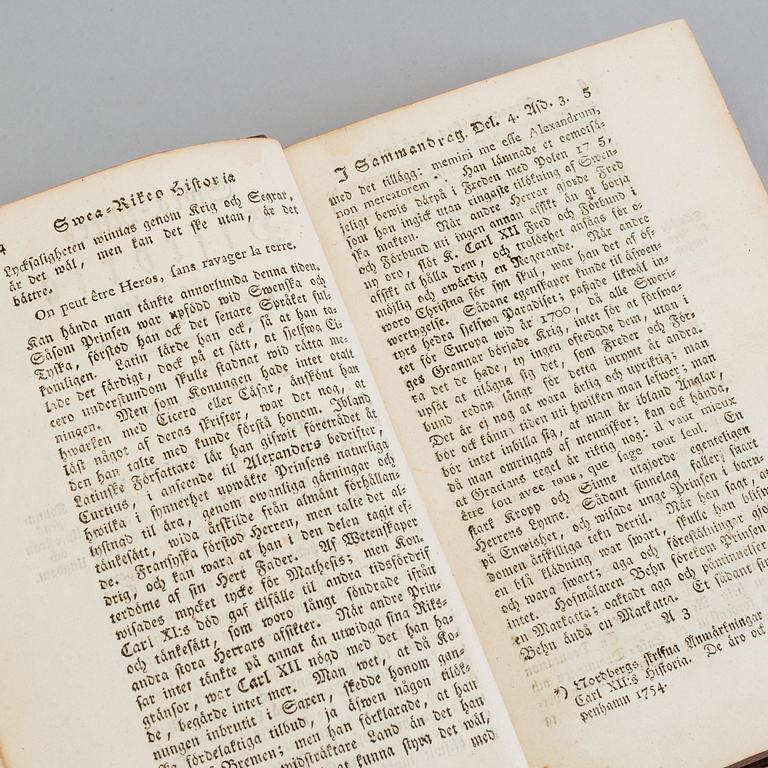 4 Swea-Rikes Historia
Lycksaligheten winnas genom Krig och Segrar,
är det wäl, men kan det ske utan, är det
bättre.
On peut être Heros, sans ravager la terre.
Kan hända man tänkte annorlunda denna tiden.
Såsom Prinsen war upfödd wid Swenska och
Tyska, förstod han ock det senare Språket ful-
komligen. Latin lärde han ock, så at han ta-
lade det färdigt, dock på et sätt, at sjelfwa Ci-
cero understundom skulle stadnat wid rätta me-
ningen. Men som Konungen hade intet otalt
hwarken med Cicero eller Cäsar, ånskönt han
läst något af deras skrifter, war det nog, at
den han talte med kunde förstå honom. Ibland
Latinske Författare lär han giswit företrädet åt
Curtius, i anseende til Alexanders bedrifter,
hwilka i synnerhet upwäkte Prinsens naturliga
lystnad til ära, genom owanliga gärningar och
tänkesätt, wida åtskilde från almänt förhållan-
de. Fransyska förstod Herren, men talte det al-
drig, och kan wara at han i den delen tagit ef-
terdöme af sin Herr Fader. Af Wetenskaper
wisades mycket tycke för Mathesis; men Kon.
Carl XI:s död gaf tilfälle til andra tidsfördrif
och tänkesätt, som woro långt söndrade ifrån
andra stora Herrars afsikter. När andre Prin-
sar intet tänkte på annat än utwidga sina Riks-
gränsor, war Carl XII nögd med det han ha-
de, begärde intet mer. Man wet, at då Ko-
nungen inbrutit i Saxen, skedde honom gan-
ska fördelaktiga tilbud, ja äfwen någon tilök-
Bremen; men han förklarade, at han
widsträktare Land än det han
at kunna styra det wäl,
med
I Sammandrag. Del. 4. Afd. 3. 5
med det tillägg: memini me esse Alexandrum,
non mercatorem. Han lämnade et oemotså-
jeligt bewis därpå i Freden med Polen
som han ingick utan ringaste tilökning af Swen-
ska makten. När andre Herrar gjorde Fred
och Förbund uti ingen annan afsikt än at börja
ny oro, slöt K. Carl XII Fred och Förbund i
afsikt at hålla dem, och trolöshet ansågs för o-
möjlig och owärdig en Regerande. När andre
woro Christna för syn skul, war han det af öf-
wertygelse. Sådane egenskaper kunde til äfwen-
tyrs hedra sjelfwa Paradiset; passade likwäl in-
tet för Europa wid år 1700, då alle Sweri-
ges Grannar började Krig, intet för at förswa-
ra det de hade, ty ingen ofredade dem, utan i
upsåt at tilägna sig det, som Freder och För-
bund redan långt för detta inrymt åt andra.
Det är ej nog at wara ärlig och upriktig; man
bör ock känna tiden uti hwilken man lefwer; man
bör intet inbilla sig, at man är ibland Änglar,
då man omringas af menniskor; kan ock hända,
at Gracians regel är riktig nog: il vaut mieux
être fou avec tous, que sage tout seul. En
stark Kropp och Sinne utgjorde egenteligen
Herrens lynne. Sådant sinnelag faller snart
på Enwishet, och wisade unge Prinsen i barn-
domen åtskilliga tekn dertil. När han sagt, at
en blå klädning war swart, skulle han blifwa
och wara swart; aga och föreställningar gjorde
intet. Hofmålaren Behn förekom Prinsen som
en Markatta; oaktadt aga och påminnelser war
Behn ändå en Markatta. Et sådant sinne
A 3
*) Nordbergs skrifna Anmärkningar
Carl XII:s Historia. De äro ock
penhamn 1754.